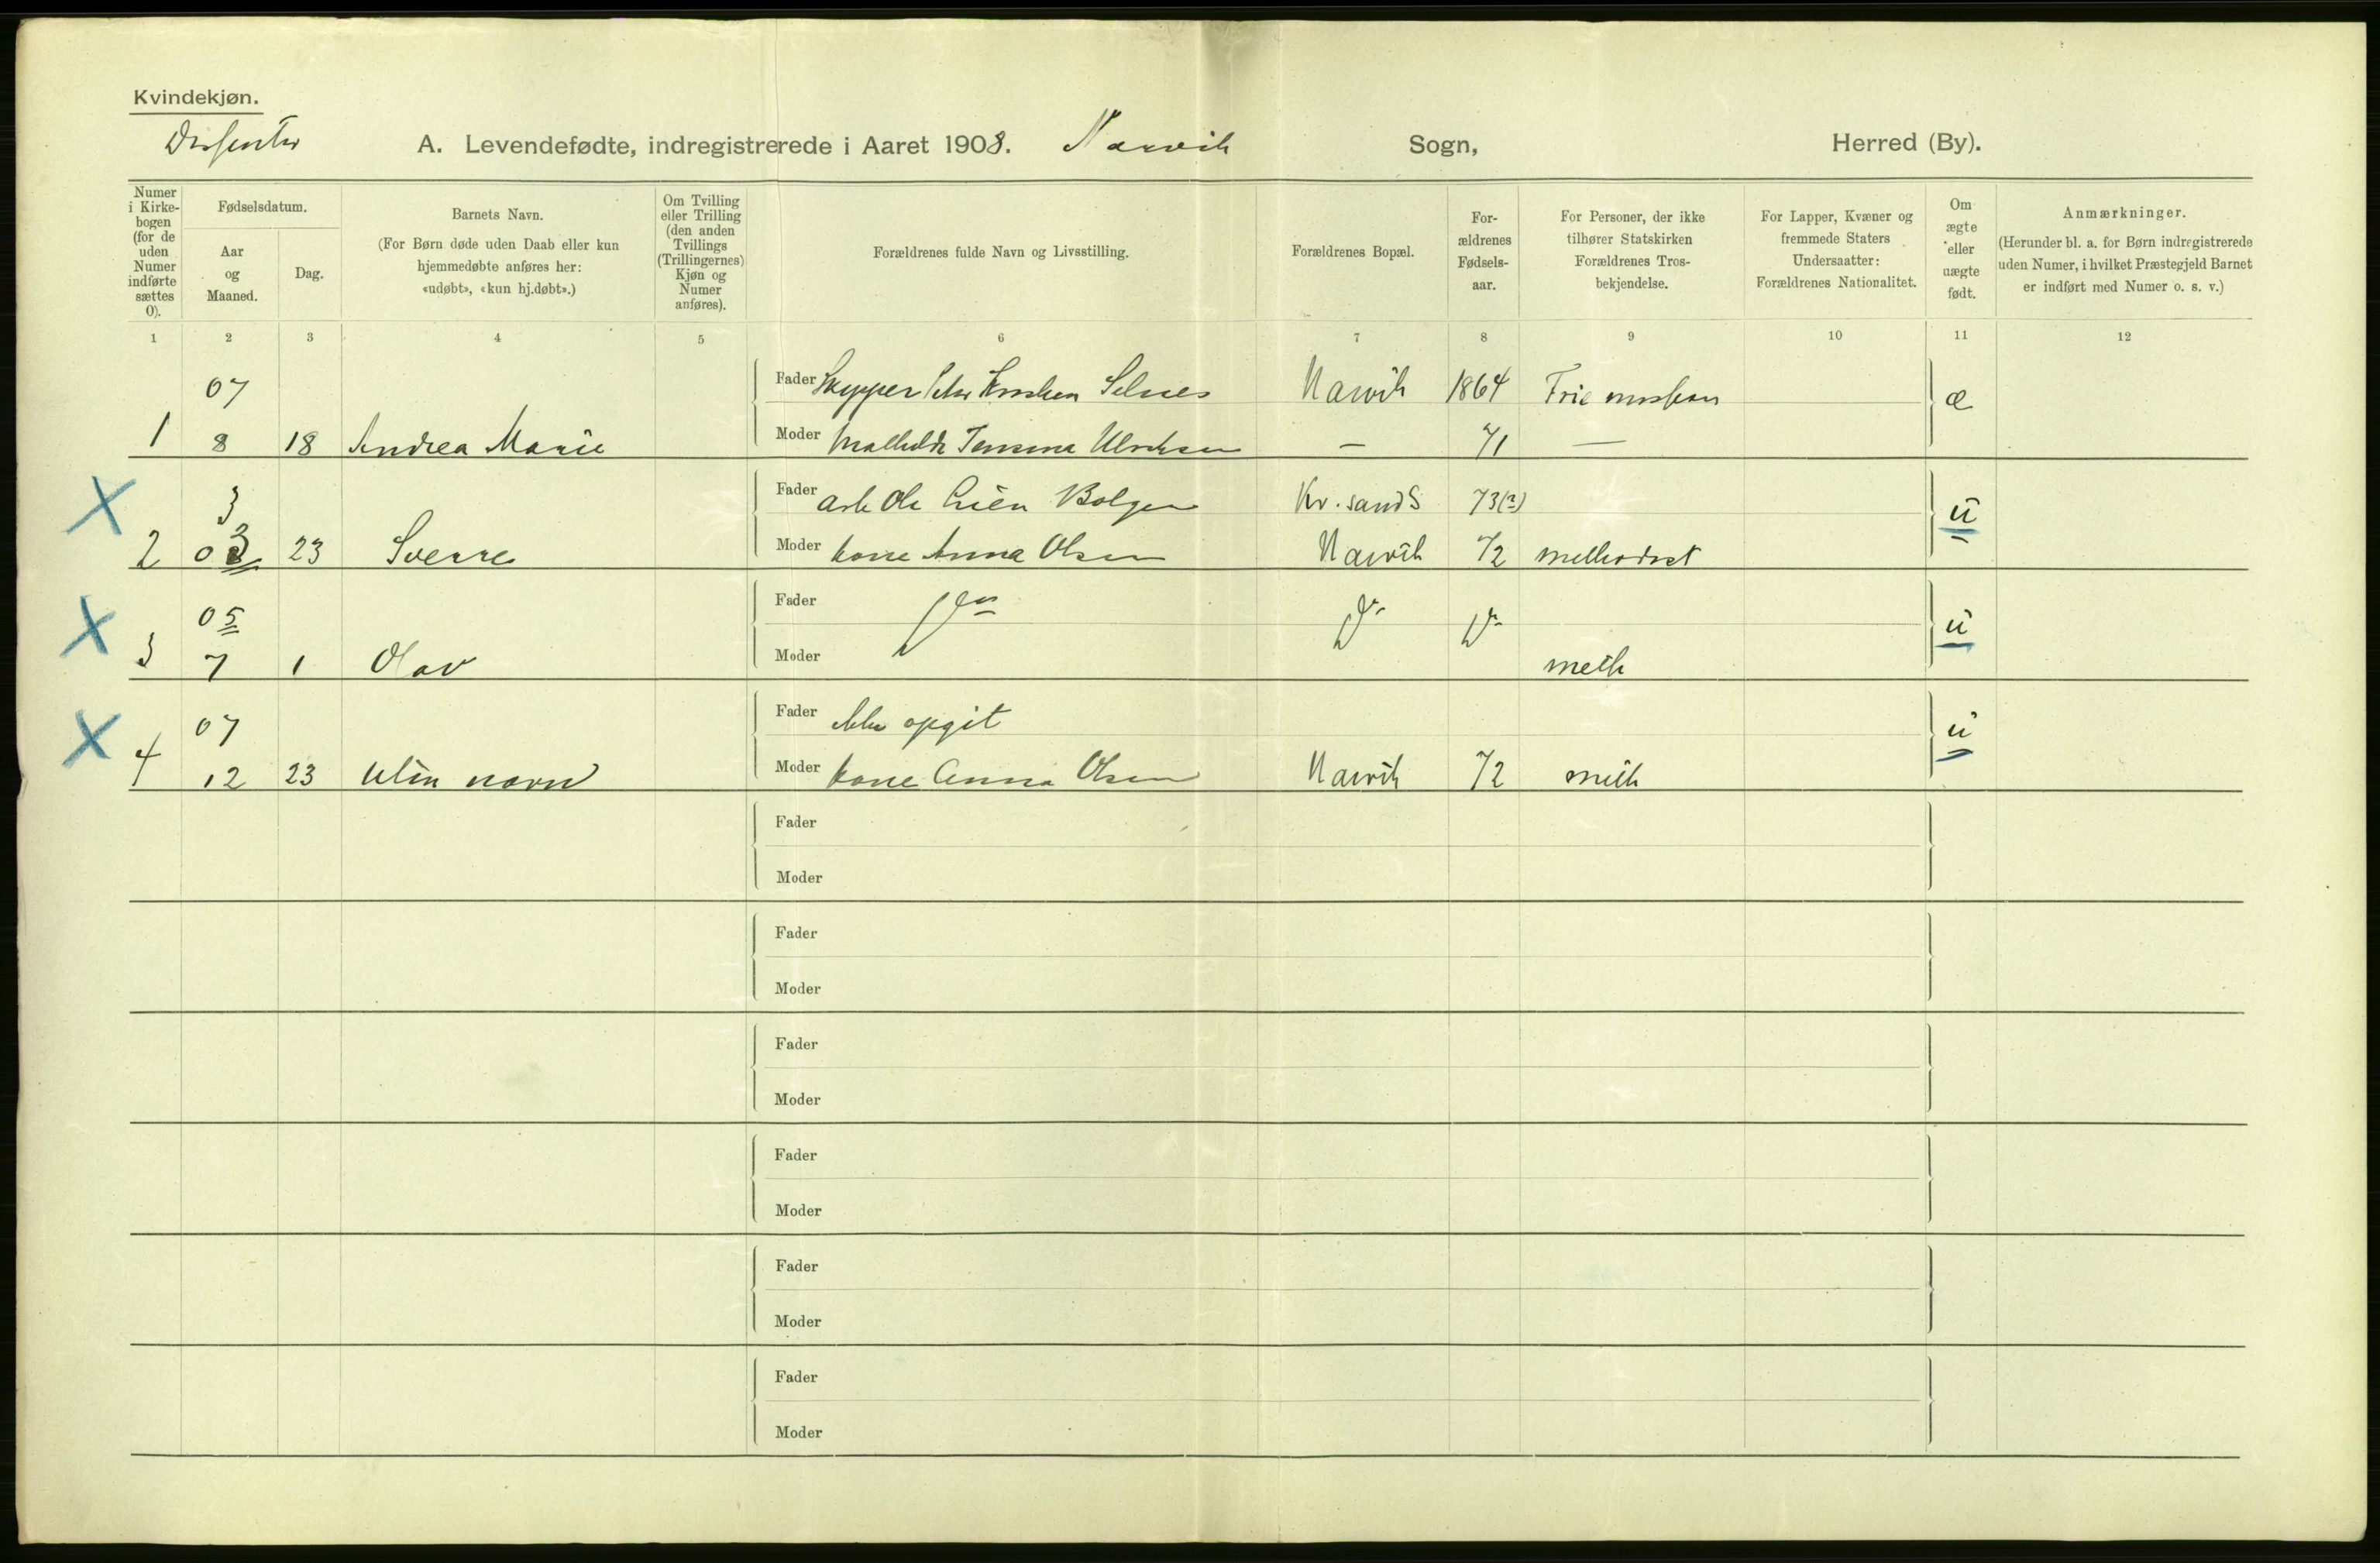 Kvindekjøn.
Dissenter
A. Levendefødte, indregistrerede i Aaret 1908. Narvik Sogn, Herred (By).
Numer i Kirkebogen (for de uden Numer indførte sættes 0).
Fødselsdatum.
Aar og Maaned.
Dag.
Barnets Navn.
(For Børn døde uden Daab eller kun hjemmedøbte anføres her: «udøbt», «kun hj.døbt».)
Om Tvilling eller Trilling (den anden Tvillings (Trillingernes) Kjøn og Numer anføres).
Forældrenes fulde Navn og Livsstilling.
Forældrenes Bopæl.
Forældrenes Fødselsaar.
For Personer, der ikke tilhører Statskirken Forældrenes Trosbekjendelse.
For Lapper, Kvæner og fremmede Staters Undersaatter: Forældrenes Nationalitet.
Om ægte eller uægte født.
Anmærkninger.
(Herunder bl. a. for Børn indregistrerede uden Numer, i hvilket Præstegjeld Barnet er indført med Numer o. s. v.)
1 2 3 4 5 6 7 8 9 10 11 12
07 Fader Skipper Selnes Narvik 1864 Frie mission æ
1 8 18 Andrea Marie Moder Mathilde Jensine Ulriksen — 71 —
X 3 Fader arb Ole Lien Bolgen Kr.sandS 73(?) u
2 03 23 Sverre Moder kone Anna Olsen Narvik 72 methodist
X 05 Fader u
3 7 1 Olav Moder meth
X 07 Fader ikke opgit u
4 12 23 uten navn Moder kone Anna Olsen Narvik 72 meth
Fader
Moder
Fader
Moder
Fader
Moder
Fader
Moder
Fader
Moder
Fader
Moder